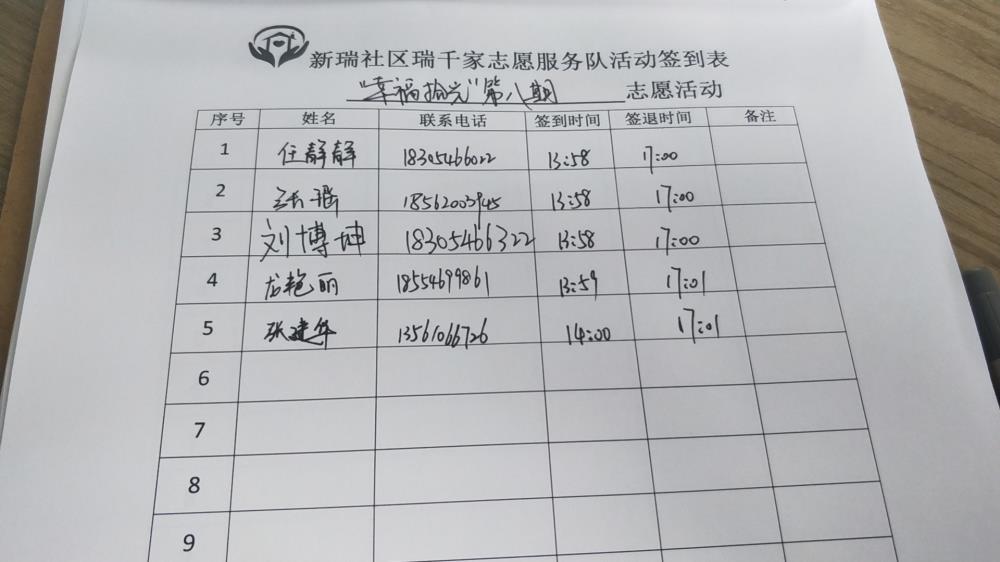 新瑞社区瑞千家志愿服务队活动签到表
“幸福拾光”第八期 志愿活动
序号 姓名 联系电话 签到时间 签退时间 备注
1 任静静 18305466022 13:58 17:00
2 18562003945 13:58 17:00
3 刘博坤 18305466322 13:58 17:00
4 龙艳丽 18554699861 13:59 17:01
5 张建华 13561066726 14:00 17:01
6
7
8
9